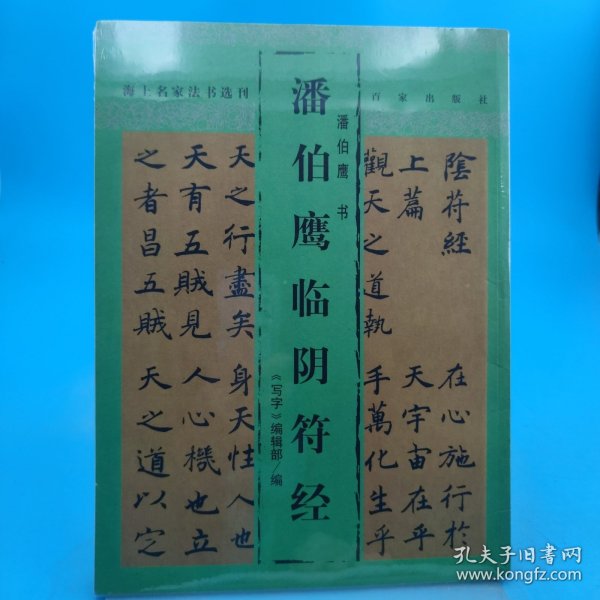 海上名家法书选刊
百家出版社
潘伯鹰临阴符经
潘伯鹰 书
《写字》编辑部/编
陰苻經
上篇
觀天之道執
天之行盡矣
天有五賊見
之者昌五賊
在心施行於
天宇宙在乎
手萬化生乎
身天性人也
人心機也立
天之道以定
孔夫子旧书网
www.kongfz.com